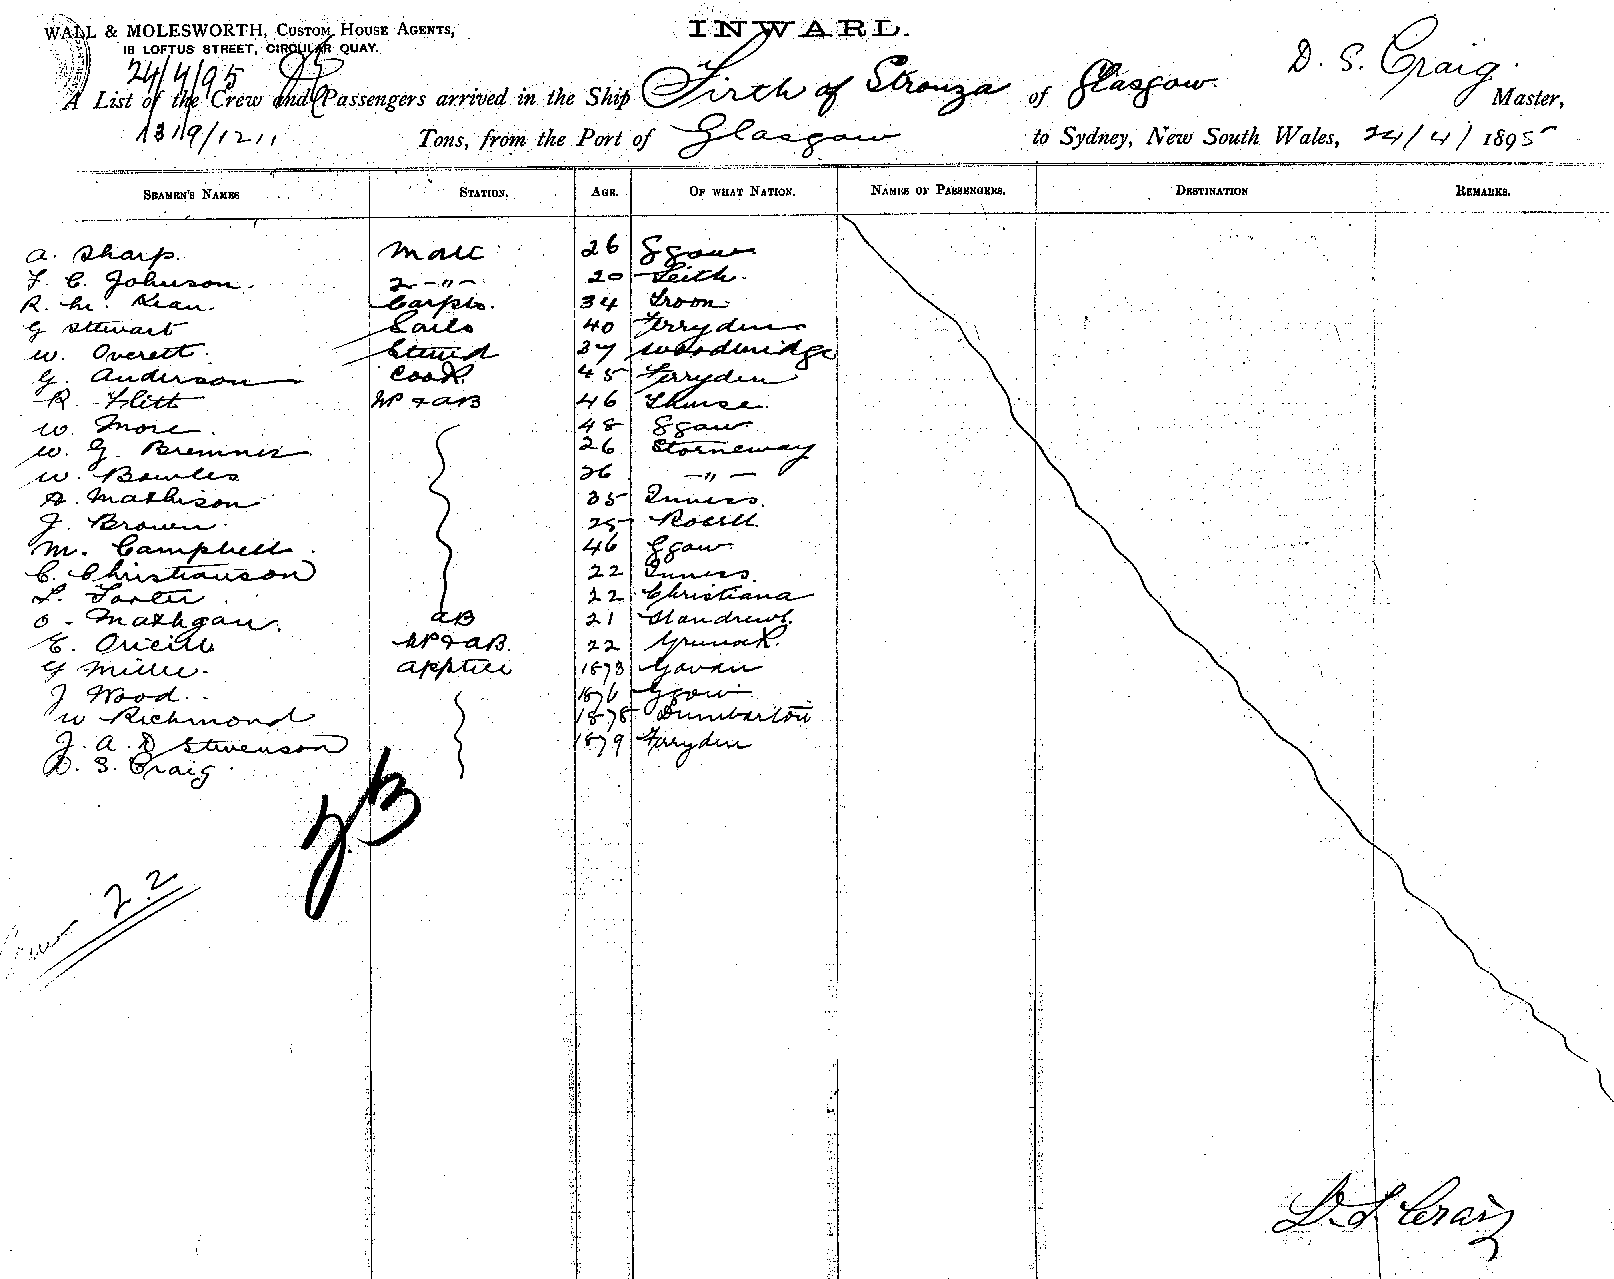 WALL & MOLESWORTH, CUSTOM HOUSE AGENTS,
18 LOFTUS STREET, CIRCULAR QUAY.
INWARD.
24/4/95
D. S. Craig.
A List of the Crew and Passengers arrived in the Ship Firth of Stronza of Glasgow. Master,
1319/1211 Tons, from the Port of Glasgow to Sydney, New South Wales, 24/4/1895
SEAMEN'S NAMES STATION. AGE. OF WHAT NATION. NAMES OF PASSENGERS. DESTINATION REMARKS.
A. Sharp. Mate 26 Ggow
F. C. Johnson. 2 -"- 20 Leith.
R. Mc. Kean. Carptr. 34 Troon
G Stewart Sails 40 Ferryden
W. Overett. Stewd 37 Woodbridge
G. Anderson Cook 45 Ferryden
R. Flett 46
W. More. 48 Ggow
W. G. Bremner 26 Storneway
W. Bowles 26 -"-
A. Mathison 35 Inness.
J. Brown. 25
M. Campbell. 46 Ggow
C. Christianson 22 Inness.
22 Christiana
AB 21 St andrews.
E. Oneill & AB. 22
G Apptice 1873 Govan
J Wood. 1876 Ggow
W Richmond 1878 Dumbarton
J. A. D Stevenson 1879 Feryden
D. S. Craig.
Crew 22
D. S. Craig